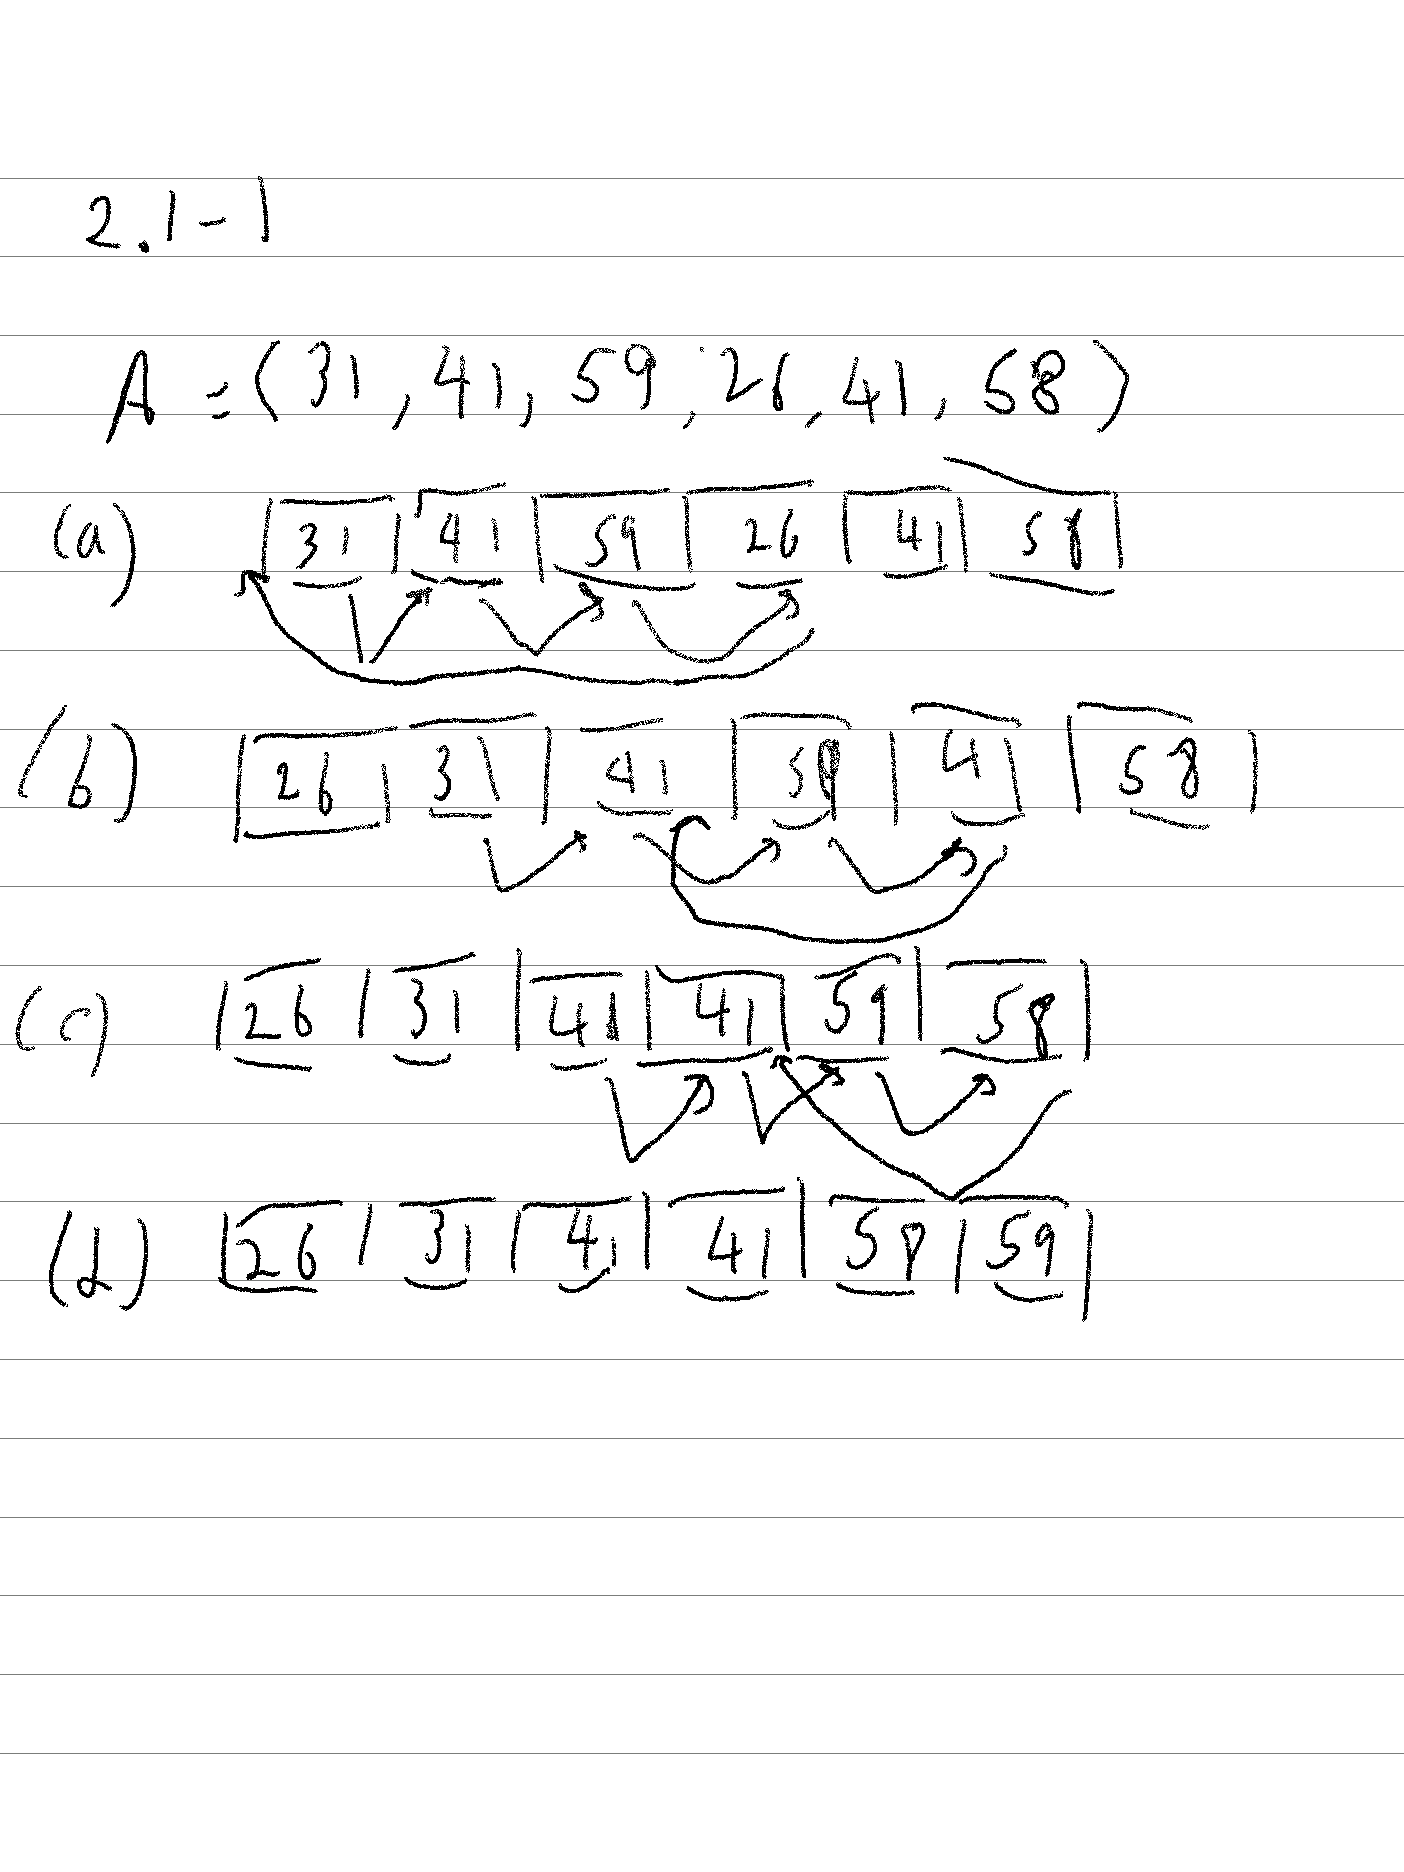 2.1-1
A = ⟨31, 41, 59, 26, 41, 58⟩
(a) 31 41 59 26 41 58
(b) 26 31 41 59 41 58
(c) 26 31 41 41 59 58
(d) 26 31 41 41 58 59